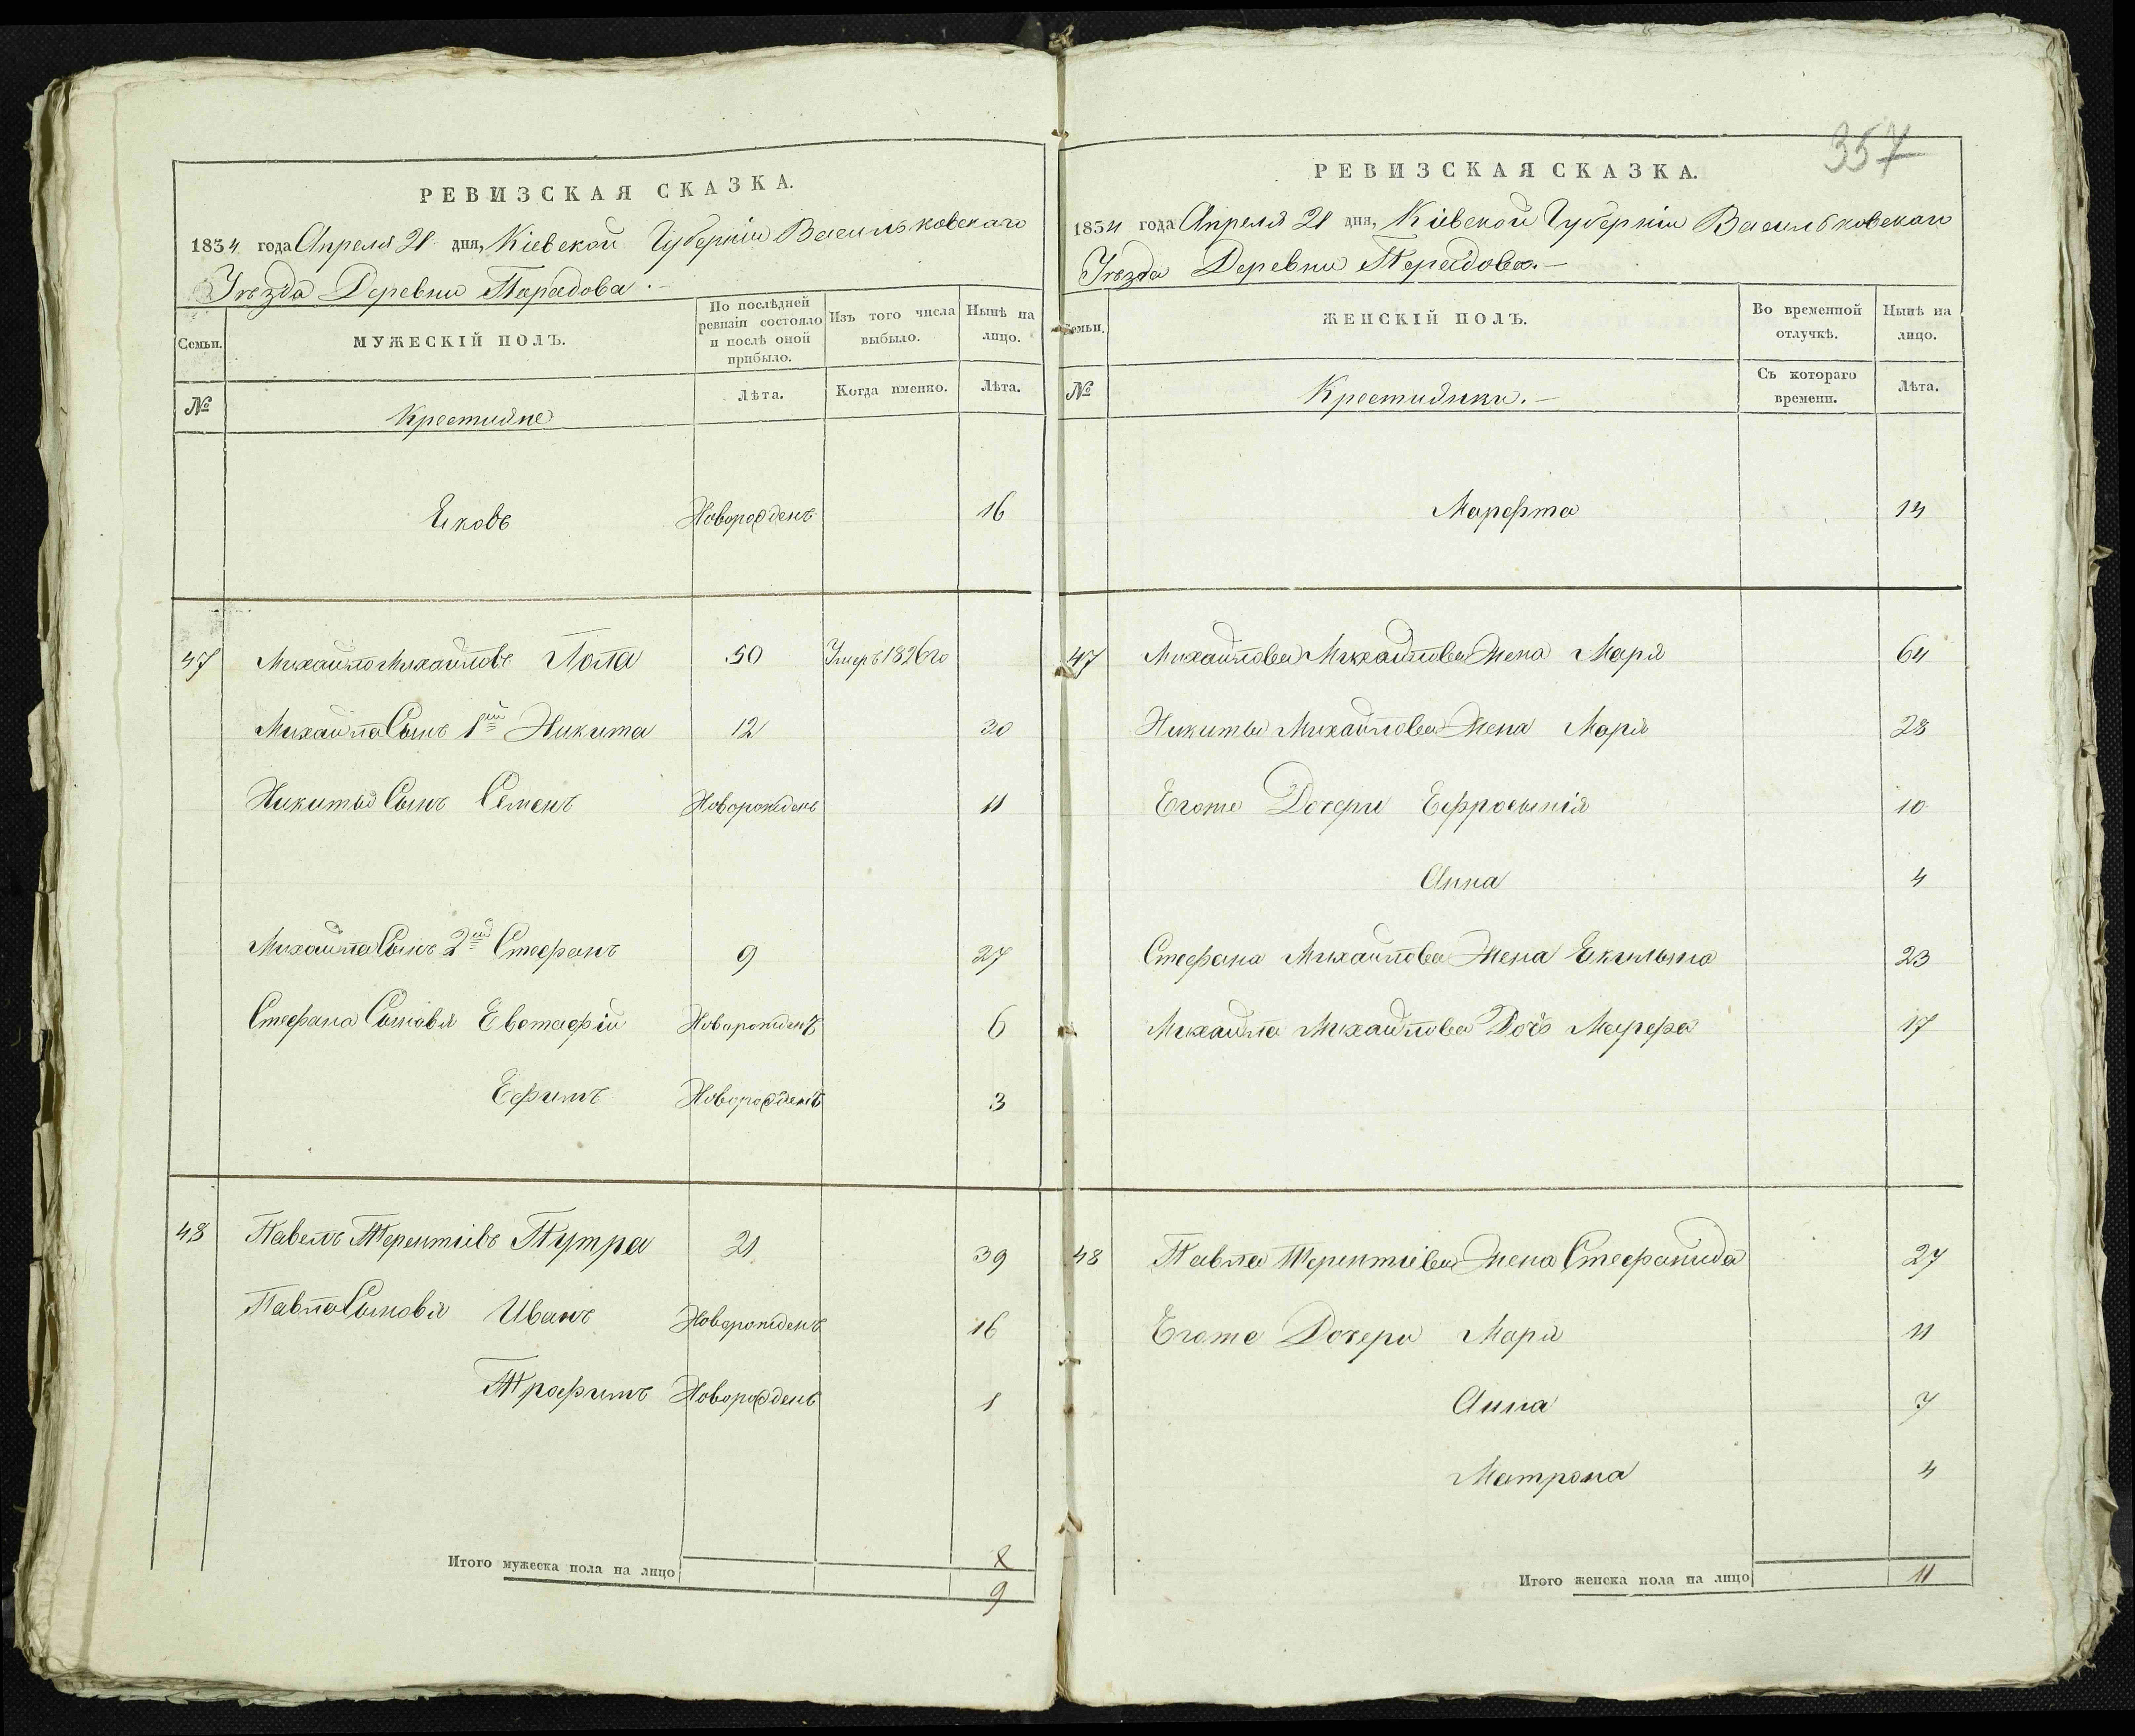 РЕВИЗСКАЯ СКАЗКА.
1834 года Апреля 21 дня, Кіевской Губерніи Васильковскаго
Уѣзда Деревни Парадова.
Семьи.
МУЖЕСКІЙ ПОЛЪ.
По послѣдней ревизіи состояло и послѣ оной прибыло.
Изъ того числа выбыло.
Нынѣ на лицо.
№
Крестияне
Лѣта.
Когда именно.
Лѣта.
Яковъ Новорожденъ 16
47 Михайло Михайловъ Лола 50 Умеръ 1826го
Михайла Сынъ 1й Никита 12 30
Никиты Сынъ Семенъ Новорожденъ 11
Михайла Сынъ 2й Стефанъ 9 27
Стефана Сыновя Евстафій Новорожденъ 6
Ефимъ Новорожденъ 3
48 Павелъ Терентіевъ Путра 21 39
Павла Сыновя Иванъ Новорожденъ 16
Трафимъ Новорожденъ 1
Итого мужеска пола на лицо 8
9
357
РЕВИЗСКАЯ СКАЗКА.
1834 года Апреля 21 дня, Кіевской Губерніи Васильковскаго
Уѣзда Деревни Парадова.
Семьи.
ЖЕНСКІЙ ПОЛЪ.
Во временной отлучкѣ.
Нынѣ на лицо.
№
Крестиянки.
Съ котораго времени.
Лѣта.
Марфта 14
47 Михайлова Михайлова Жена Маря 64
Никиты Михайлова Жена Маря 28
Егоже Дочери Ефросынія 10
Анна 4
Стефана Михайлова Жена Якилына 23
Михайла Михайлова Дочь Марфа 17
48 Павла Терентіева Жена Стефанида 27
Егоже Дочери Маря 11
Анна 7
Матрона 4
Итого женска пола на лицо 11